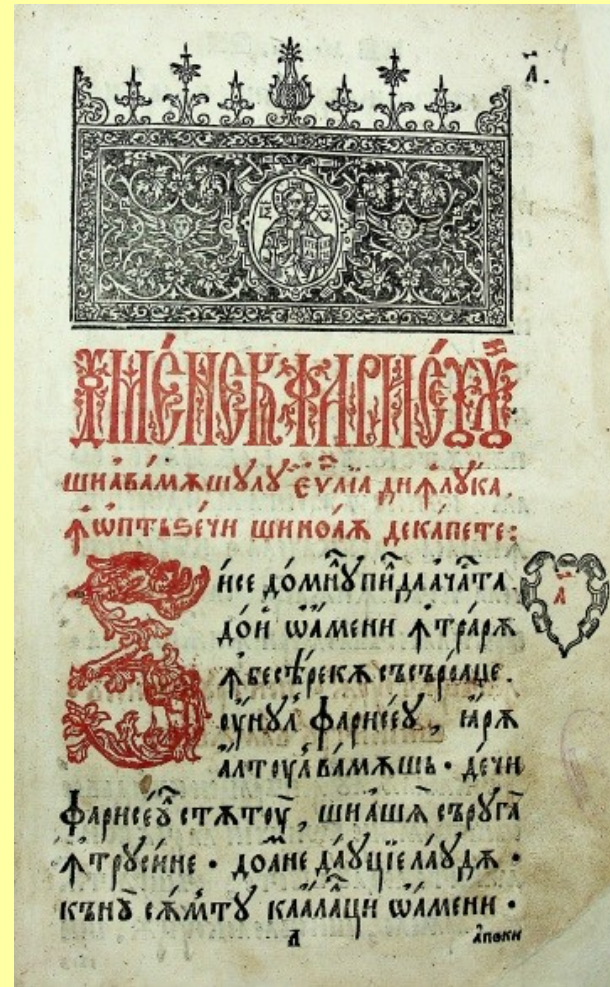 а҃.
ꙟ҆МЄ́НЕК ФАРИСЄ́ꙋꙋ҆Лꙋй
шиавамѫшꙋлꙋ е҆ѵ҃лїа динлꙋка.
ꙟѡптьѕе́чи шиноаѫ декапете:
Зисе до́мнꙋ пи́лдаача́ста.
до́и ѡа́мени ꙟтра́рѫ
ꙟбесѣ́рекѫ съсъро́аце.
оу҆нꙋл фарисе́ꙋ, ꙗ҆рѫ
а҆лтоул вамѫшь · де́чи
а҃
фарисе́ꙋ стѫтꙋ, шиаша сърꙋга
ꙟтрꙋси́не · до́амне да́ꙋцїе ла́ꙋдѫ ·
къ нꙋ сѫ́мту каала́лци ѡа́мени ·
а
а҆поки